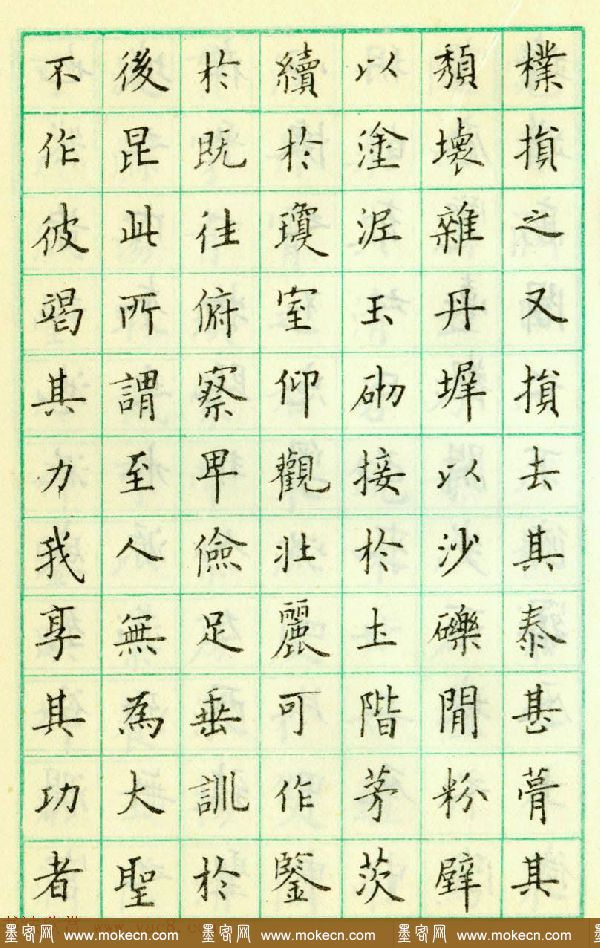 樸損之又損去其泰甚葺其
頹壞雜丹墀以沙礫間粉壁
以塗泥玉砌接於土階茅茨
續於瓊室仰觀壯麗可作鑒
於既往俯察卑儉足垂訓於
後昆此所謂至人無為大聖
不作彼竭其力我享其功者
墨客网 www.mokecn.com 墨客网 www.mokecn.com 墨客网 www.mokecn.com